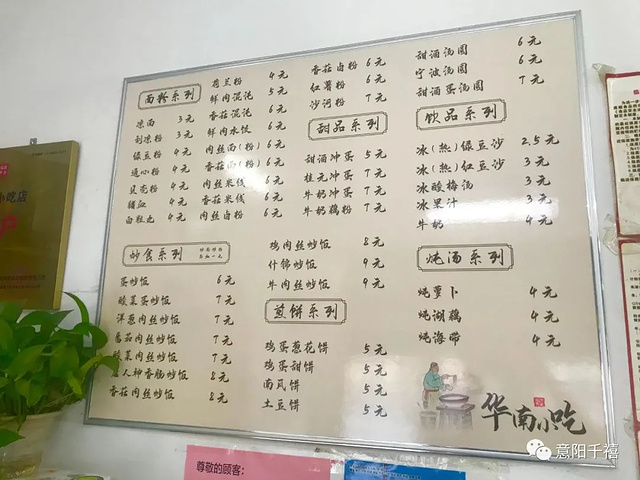 面粉系列
凉面 3元
刮凉粉 3元
绿豆粉 4元
通心粉 4元
贝壳粉 4元
猪血 4元
白粒丸 4元
荷兰粉 4元
鲜肉混沌 5元
香菇混沌 6元
鲜肉水饺 6元
肉丝面(粉) 6元
香菇面(粉) 6元
肉丝米线 6元
香菇米线 6元
肉丝卤粉 6元
香菇卤粉 6元
红薯粉 6元
沙河粉 7元
甜品系列
甜酒冲蛋 5元
桂元冲蛋 7元
牛奶冲蛋 7元
牛奶藕粉 7元
甜酒汤圆 6元
宁波汤圆 6元
甜酒蛋汤圆 7元
饮品系列
冰(热)绿豆沙 2.5元
冰(热)红豆沙 3元
冰酸梅汤 3元
冰果汁 3元
牛奶 4元
炒食系列
蛋炒饭 6元
酸菜蛋炒饭 7元
洋葱肉丝炒饭 7元
香茄肉丝炒饭 7元
酸菜肉丝炒饭 7元
人神香肠炒饭 8元
香菇肉丝炒饭 8元
鸡肉丝炒饭 8元
什锦炒饭 9元
牛肉丝炒饭 9元
煎饼系列
鸡蛋葱花饼 5元
鸡蛋甜饼 5元
南瓜饼 5元
土豆饼 5元
炖汤系列
炖萝卜 4元
炖湖藕 4元
炖海带 4元
华南小吃
小吃店
尊敬的顾客:
意阳千禧